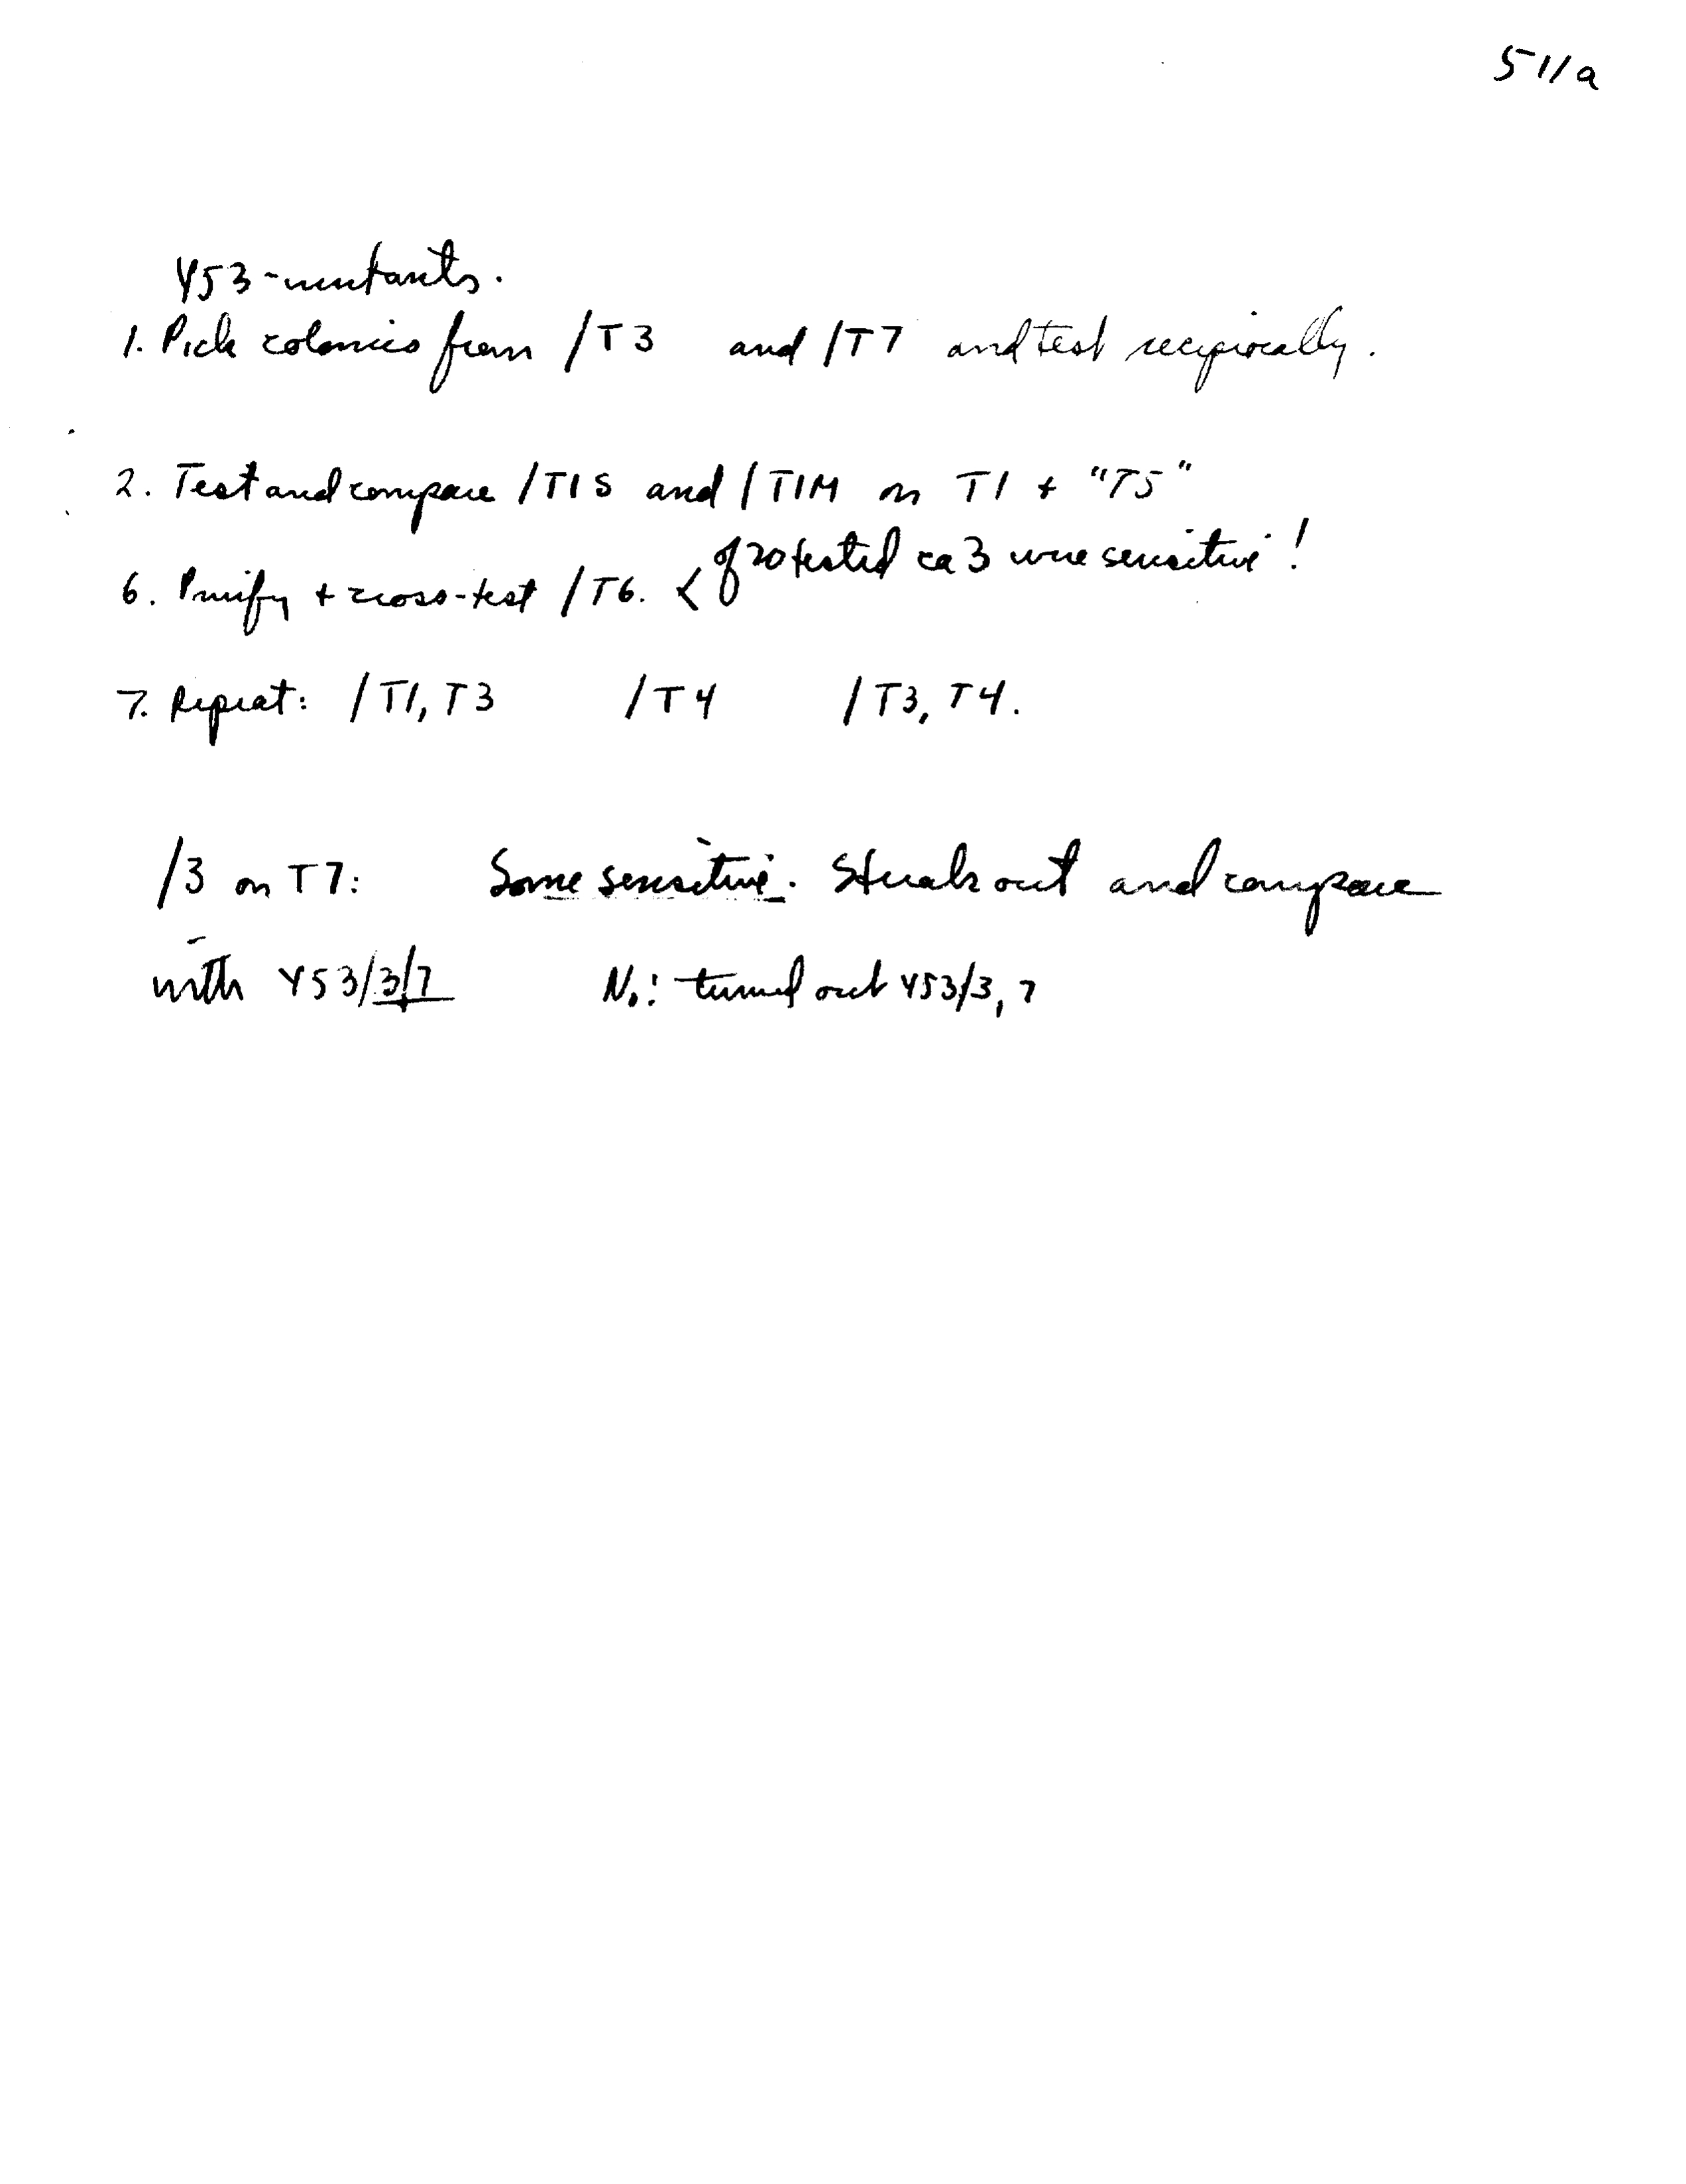 511a
Y53-mutants.
1. Pick colonies from /T3 and /T7 and test reciprocally.
2. Test and compare /T1S and /T1M on T1 + "T5"
of 20 tested ca 3 were sensitive!
6. Purify + cross-test /T6. <
7. Repeat: /T1, T3 /T4 /T3, T4.
/3 on T7: Some sensitive. Streak out and compare
with Y53/3/7 No: turned out Y53/3, 7